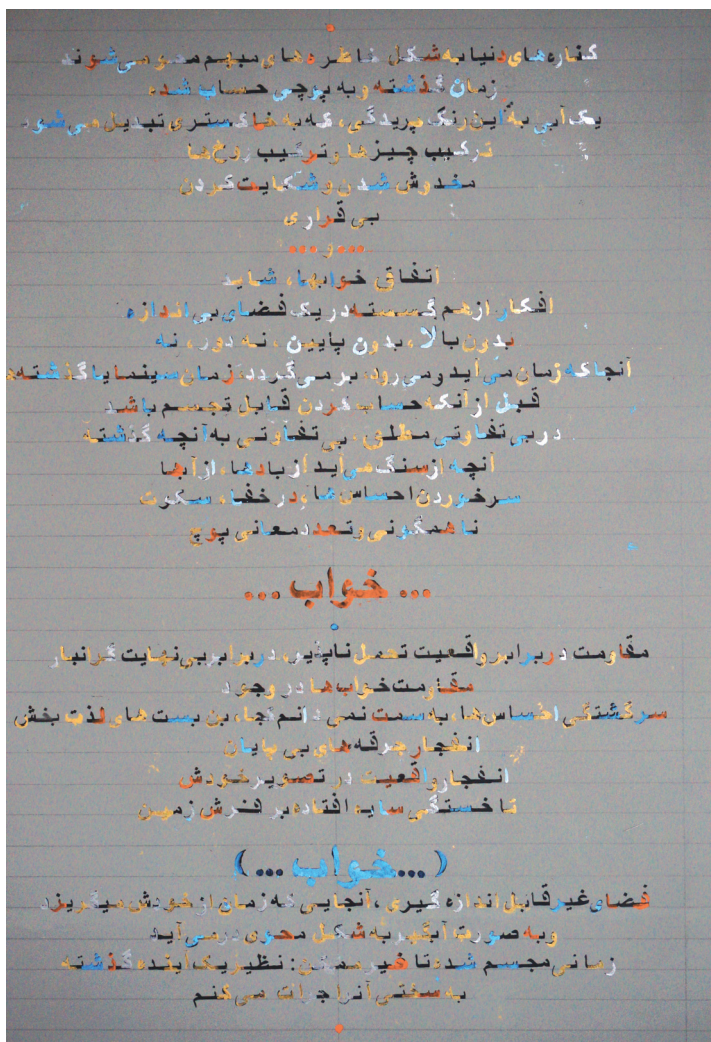 کناره‌های دنیا به شکل خاطره‌های مبهم محو می‌شوند
زمان گذشته و به پوچی حساب شده
یک آبی به این رنگ پریدگی، که به خاکستری تبدیل می‌شود
ترکیب چیزها و ترکیب رخ‌ها
مخدوش شدن و شکایت کردن
بی قراری
...و...
اتفاق خوابها، شاید
افکار از هم گسسته در یک فضای بی اندازه
بدون بالا، بدون پایین، نه دور، نه
آنجا که زمان می‌آید و می‌رود، برمی‌گردد، زمان سینما یا گذشته‌ها
قبل از آنکه حساب کردن قابل تجسم باشد
در بی تفاوتی مطلق، بی تفاوتی به آنچه گذشته
آنچه از سنگ می‌آید از بادها، از آبها
سرخوردن احساس‌ها، در خفا، سکوت
ناهمگونی و تعدد معانی پوچ
... خواب ...
مقاومت در برابر واقعیت تحمل ناپذیر، در برابر بی‌نهایت گرانبار
مقاومت خواب‌ها در وجود
سرگشتگی احساس‌ها، به سمت نمی دانم کجا، بن بست های لذت بخش
انفجار جرقه‌های بی پایان
انفجار واقعیت در تصویر خودش
تا خستگی سایه افتاده بر فرش زمین
(... خواب ...)
فضای غیر قابل اندازه گیری، آنجایی که زمان از خودش میگریزد
و به صورت آبگهر به شکل محوی درمی‌آید
زمانی مجسم شده تا غیرممکن: نظیر یک آینده گذشته
به سختی آنرا جرات می کنم